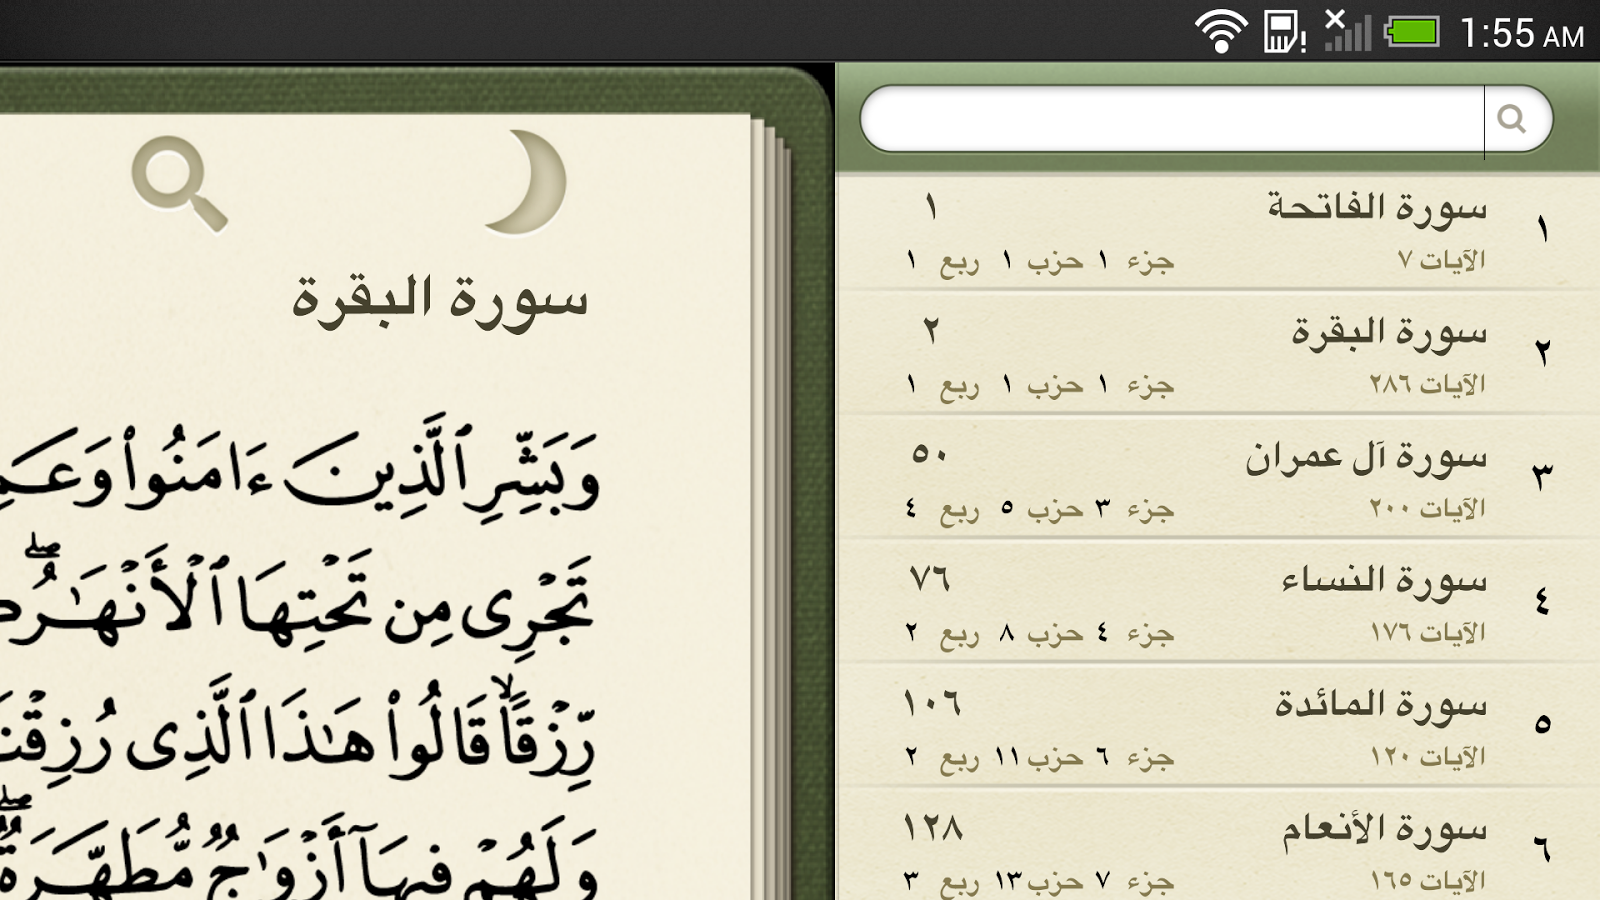 1:55 AM
سورة البقرة
وَبَشِّرِ ٱلَّذِينَ ءَامَنُوا۟ وَعَمِ
تَجْرِى مِن تَحْتِهَا ٱلْأَنْهَٰرُ ۖ
رِّزْقًا ۙ قَالُوا۟ هَٰذَا ٱلَّذِى رُزِقْنَ
وَلَهُمْ فِيهَآ أَزْوَٰجٌ مُّطَهَّرَةٌ ۖ
١ سورة الفاتحة ١
الآيات ٧ جزء ١ حزب ١ ربع ١
٢ سورة البقرة ٢
الآيات ٢٨٦ جزء ١ حزب ١ ربع ١
٣ سورة آل عمران ٥٠
الآيات ٢٠٠ جزء ٣ حزب ٥ ربع ٤
٤ سورة النساء ٧٦
الآيات ١٧٦ جزء ٤ حزب ٨ ربع ٢
٥ سورة المائدة ١٠٦
الآيات ١٢٠ جزء ٦ حزب ١١ ربع ٢
٦ سورة الأنعام ١٢٨
الآيات ١٦٥ جزء ٧ حزب ١٣ ربع ٣